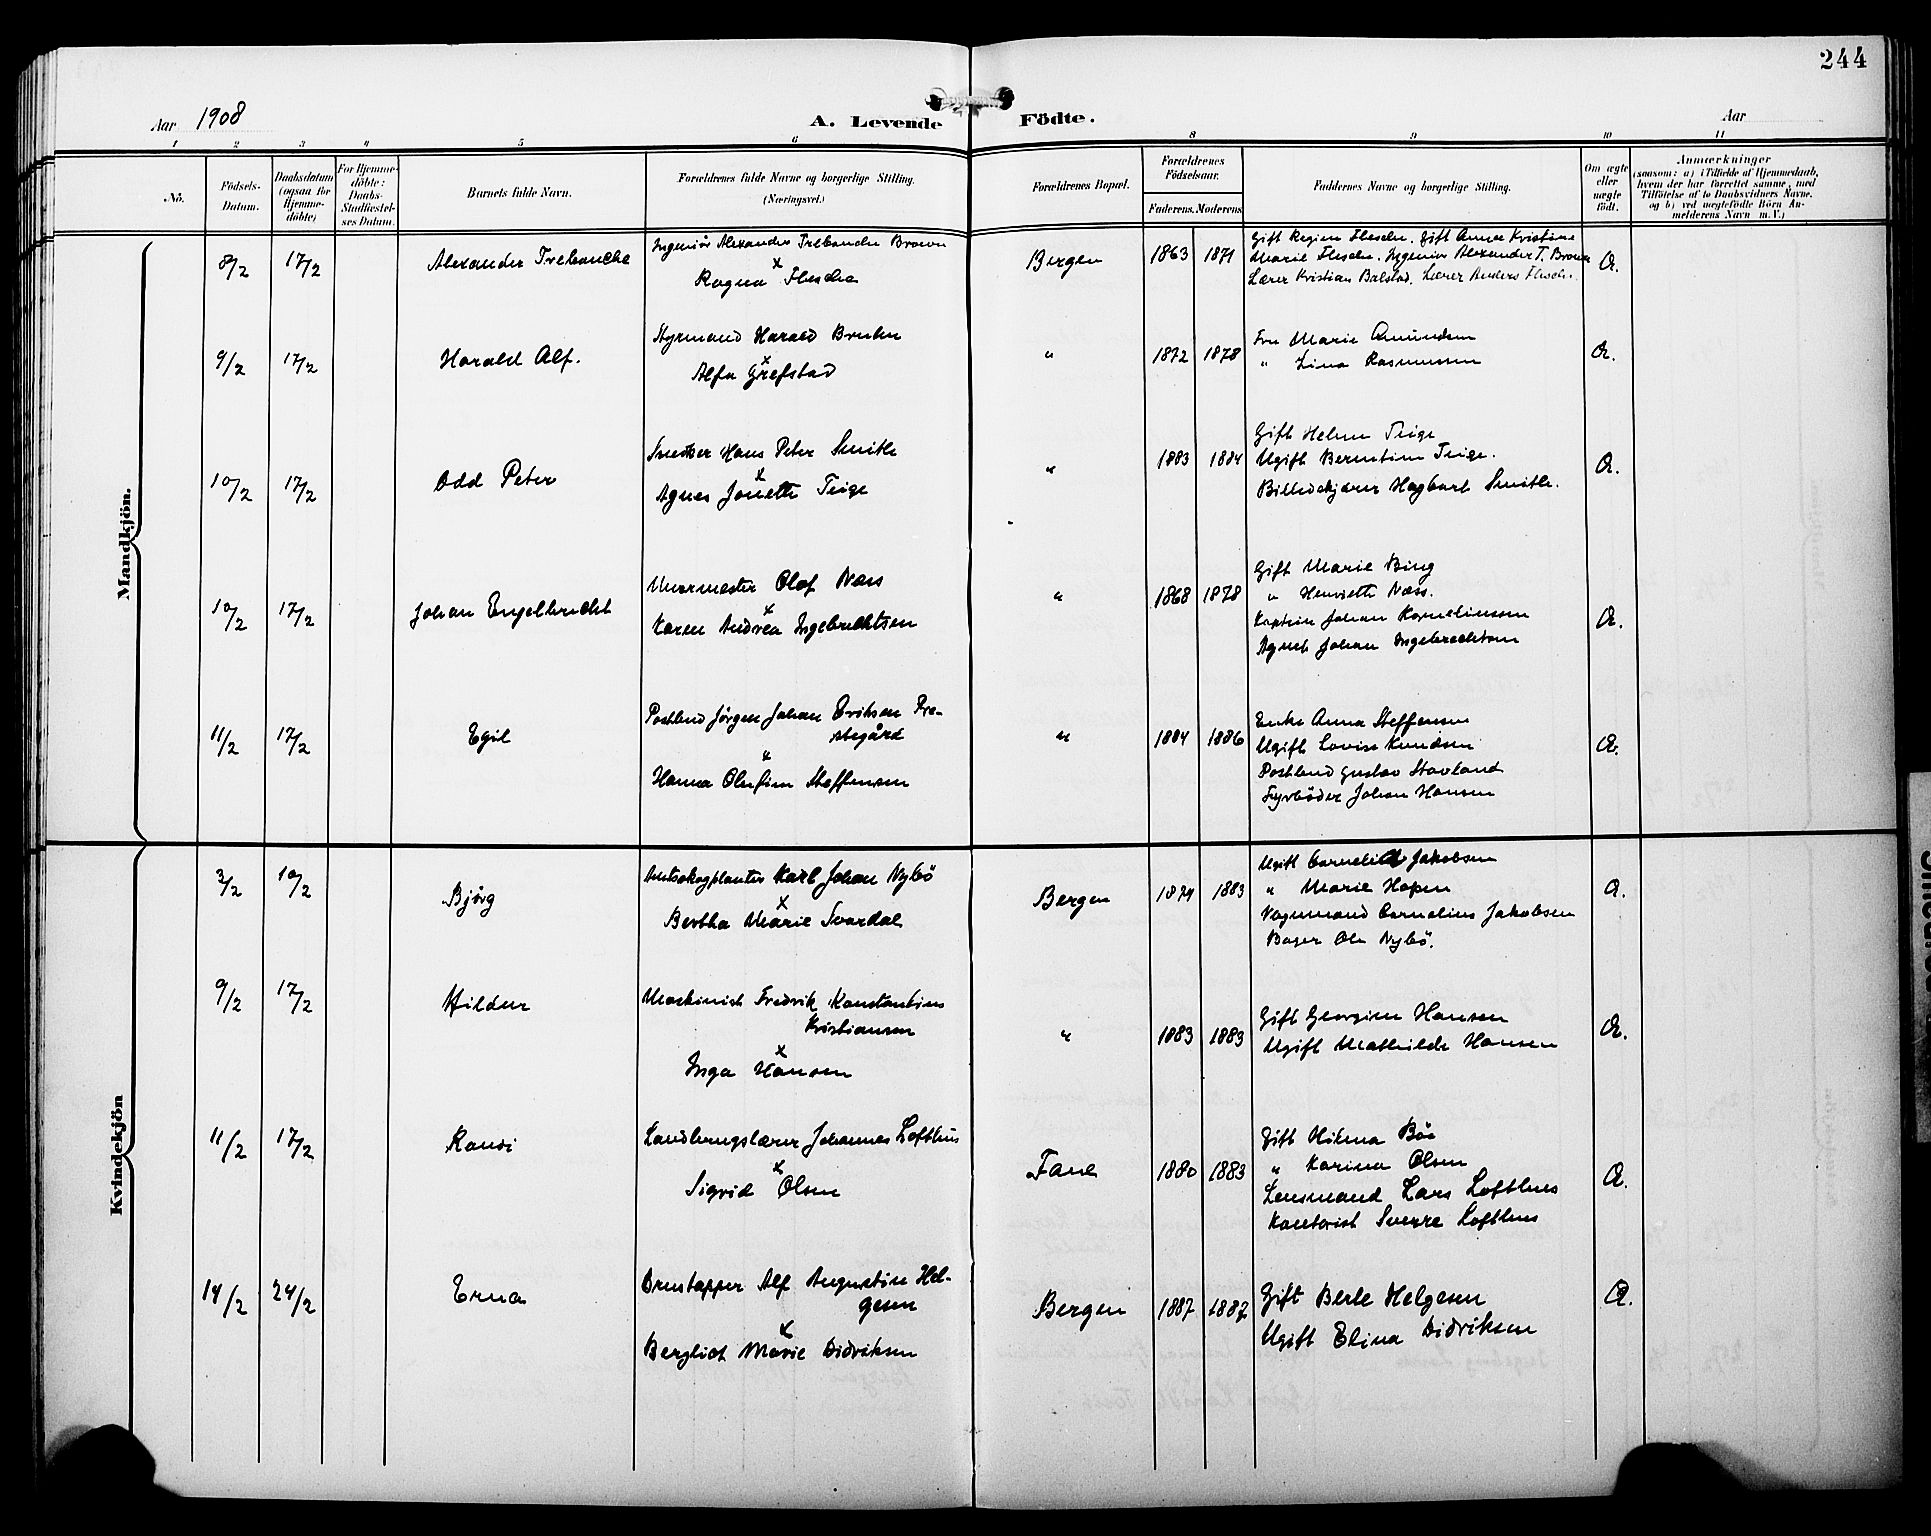 244
Aar 1908
A. Levende Födte.
Aar
1 2 3 4 5 6 8 9 10 11
No.
Födsels-Datum.
Daabsdatum (ogsaa for Hjemme-döbte)
For Hjemme-döbte: Daabs-Stadfæstel-ses Datum
Barnets fulde Navn.
Forældrenes fulde Navne og borgerlige Stilling. (Næringsvei.)
Forældrenes Bopæl.
Forældrenes Födselsaar.
Faderens. Moderens
Faddernes Navne og borgerlige Stilling.
Om ægte eller uægte födt.
Anmærkninger
(saasom: a) i Tilfælde af Hjemmedaab, hvem der har forrettet samme, med Tilföielse af to Daabsvidners Navne, og b) ved uægtefödte Börn An-melderens Navn m. V.)
Mandkjön.
8/2 17/2 Alexander Trebouche
Ingeniör Alexander Trebouche Brown
x
Ragna Flesche
Bergen 1863 1871
Gift Regine Flesche. Gift Anna Kristine
Marie Flesche. Ingeniör Alexander T. Brown
Lærer Kristian Balstad. Lærer Anders Flesche.
Æ.
9/2 17/2 Harald Alf.
Styrmand Harald Bruun
x
Alfa Grefstad
" 1872 1878
Fru Marie Amundsen
" Lina Rasmussen
Æ.
10/2 17/2 Odd Peter
Snedker Hans Peter Smith
x
Agnes Jonette Teige
" 1883 1884
Gift Helene Teige
Ugift Berentine Teige.
Billedskjærer Hagbart Smith.
Æ.
10/2 17/2 Johan Engelbrecht
Murmester Olaf Næss
x
Karen Andrea Ingebrechtsen
" 1868 1878
Gift Marie Bing
" Henriette Næss.
Kaptein Johan Korneliussen
Agent Johan Ingebrechtsen
Æ.
11/2 17/2 Egil
Postbud Jörgen Johan Eriksen Pre-
stegård
"
Hanna Olufine Steffensen
" 1884 1886
Enke Anna Steffensen
Ugift Lovise Knudsen
Postbud Gustav Stavland
Fyrböder Johan Hansen
Æ.
Kvindekjön
3/2 10/2 Bjørg
Amtsskogplanter Karl Johan Nybö
x
Bertha Marie Svardal
Bergen 1879 1883
Ugift Cornelia Jakobsen
" Marie Hopen
Vognmand Cornelius Jakobsen
Bager Ole Nybö.
Æ.
9/2 17/2 Hildur
Maskinist Fredrik Konstantius
Kristiansen
x
Inga Hansen
" 1883 1883
Gift Georgine Hansen
Ugift Mathilde Hansen
Æ.
11/2 17/2 Randi
Landbrugslærer Johannes Lofthus
x
Sigrid Olsen
Fane 1880 1883
Gift Hilma Böe
" Karina Olsen
Lensmand Lars Lofthus
Kontorist Sverre Lofthus
Æ.
14/2 24/2 Erna
Ørnstapper Alf Augustin Hel-
gesen
x
Bergliot Marie Didriksen
Bergen 1887 1887
Gift Berle Helgesen
Ugift Elina Didriksen
Æ.